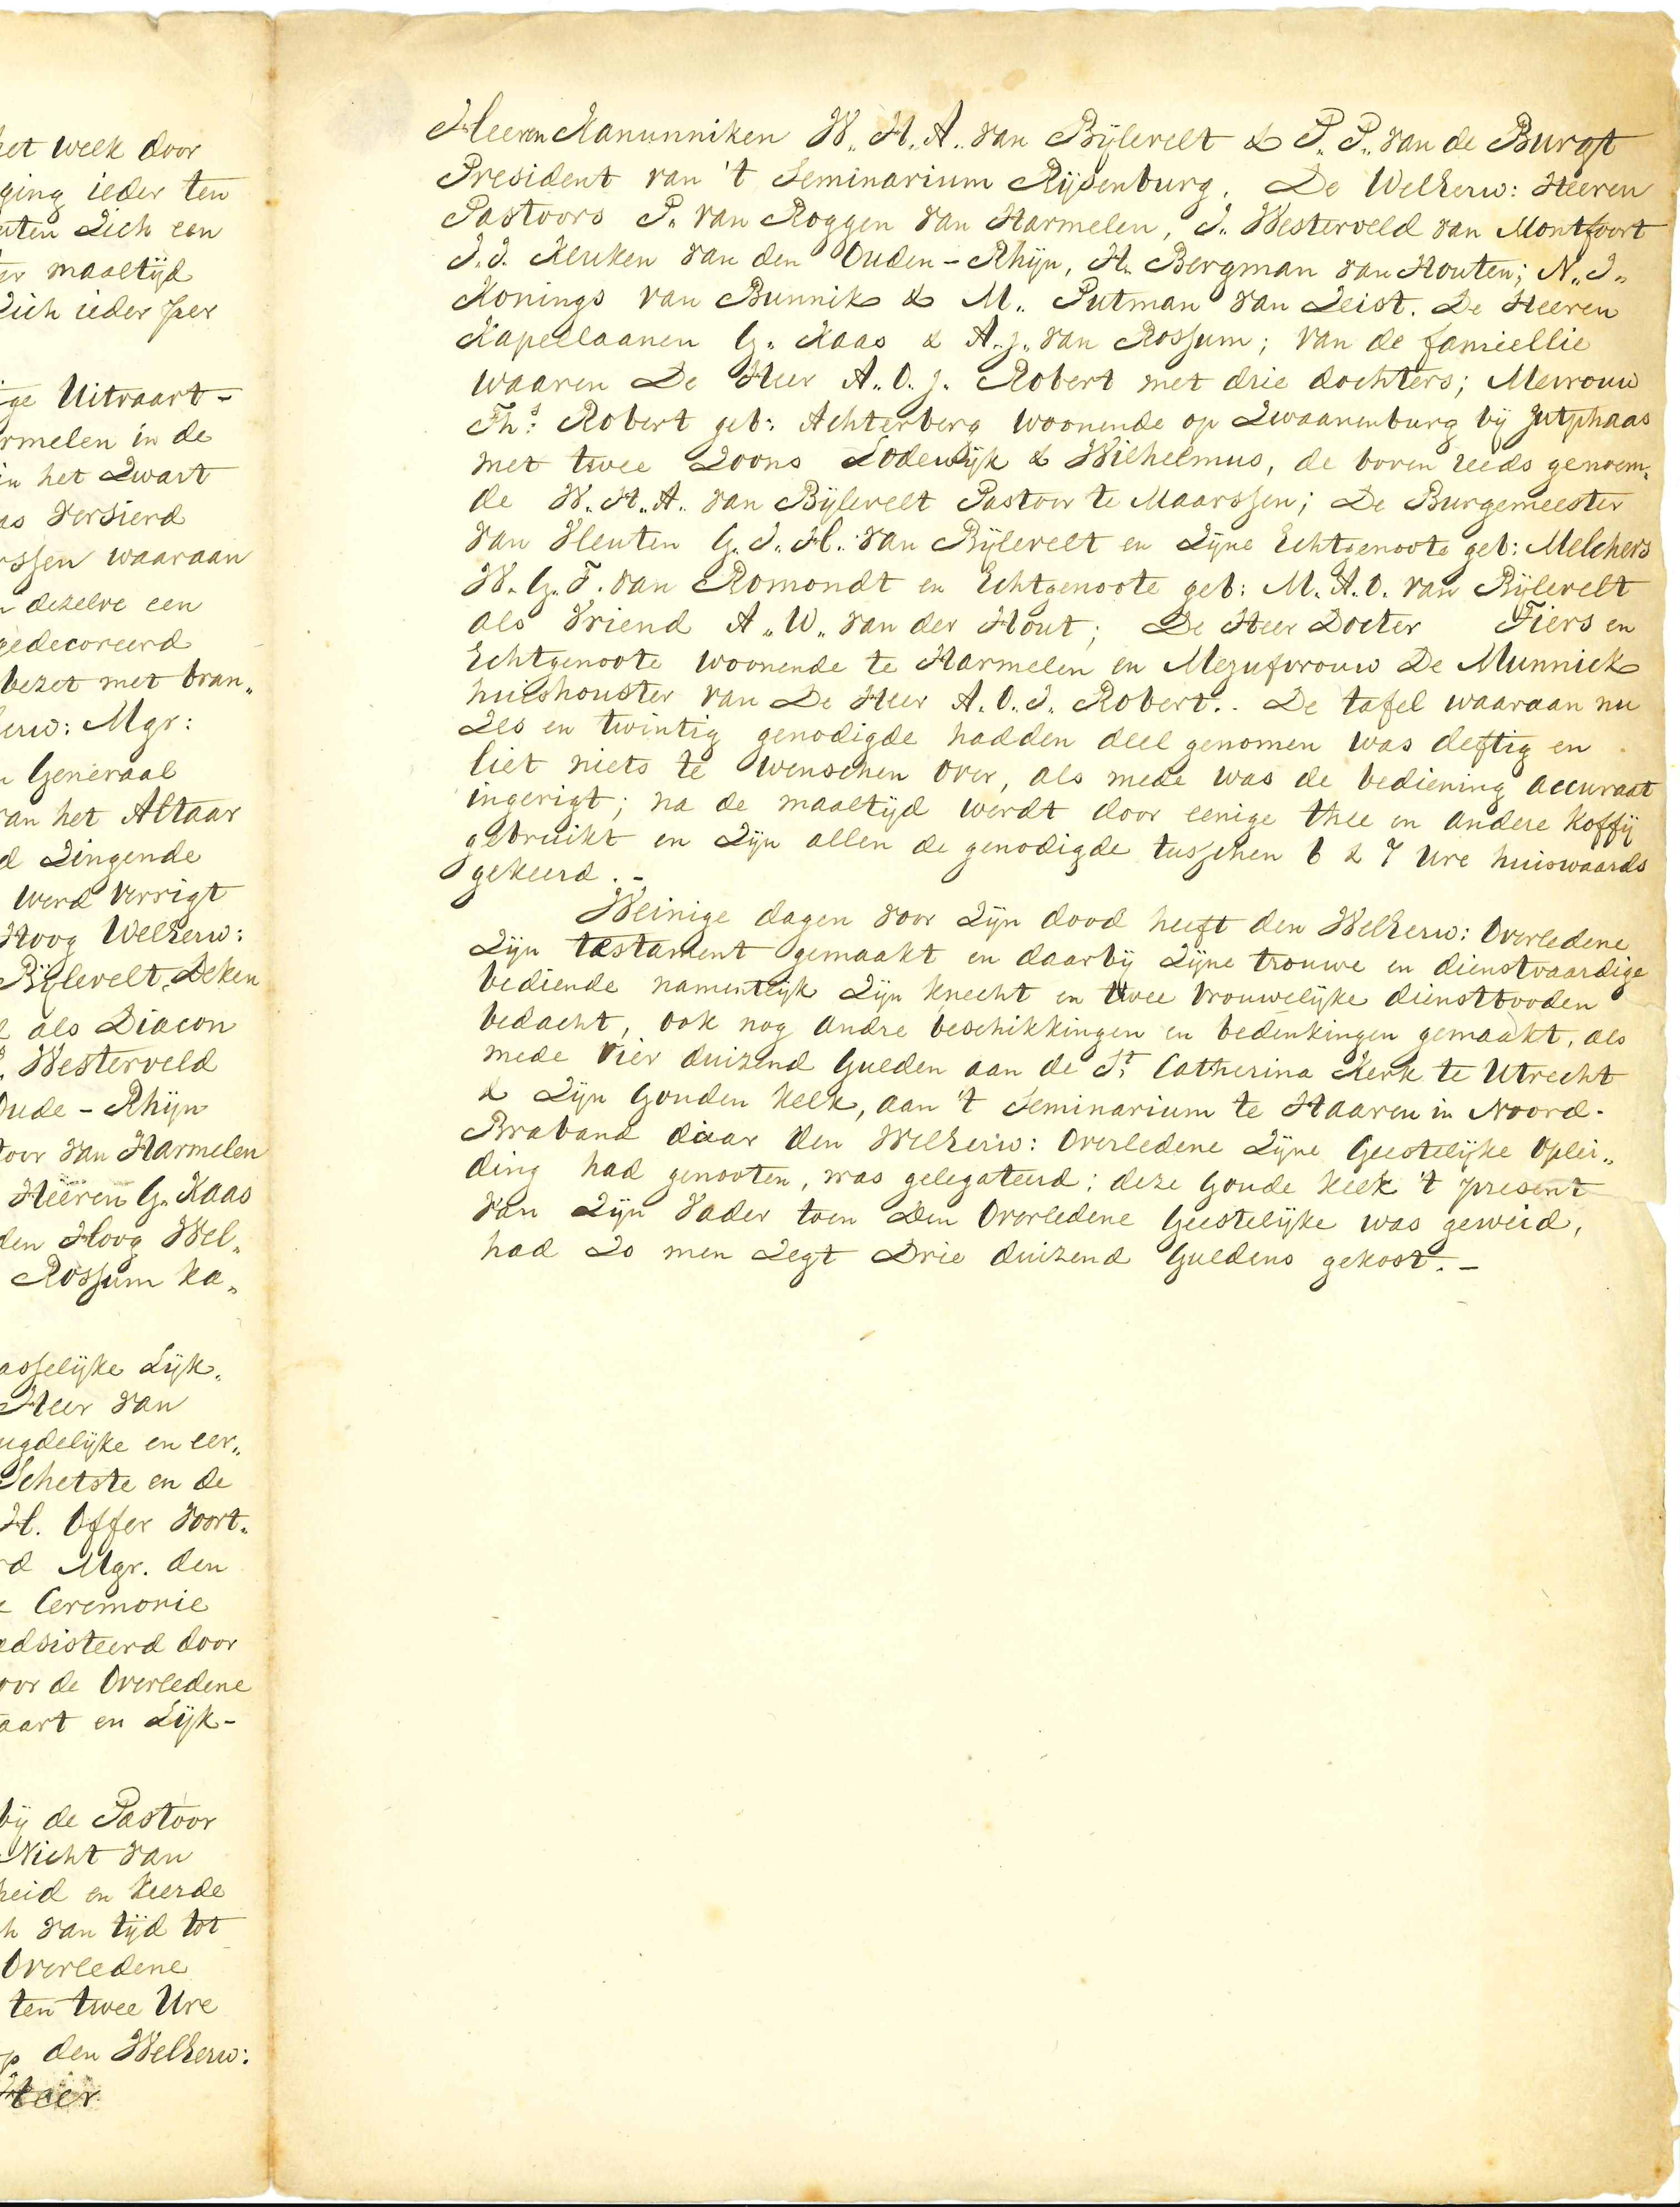 het welk door
ging ieder ten
zich een
er maaltijd
zich ieder per
ge Uitvaart-
rmelen in de
in het Zwart
as versierd
rssen waaraan
dezelve een
gedecoreerd
bezet met bran„
erw: Mgr:
Generaal
van het Altaar
d Zingende
werd verrigt
Hoog WelEerw:
Bijlevelt, Deken
als Diacon
Westerveld
Oude-Rhijn
toor van Harmelen
Heeren G. Kaas
den Hoog Wel„
Rossum ka„
asselijke Lijk„
Heer van
ugdelijke en eer„
Schetste en de
H. Offer voort„
rd Mgr. den
Ceremonie
adsisteerd door
oor de Overledene
aart en Lijk-
bij de Pastoor
Nicht van
heid en keerde
h van tijd tot
Overledene
ten twee Ure
p den WelEerw:
Heer
Heeren Kanunniken W.. H. A.. van Bijlevelt & P.. P.. van de Burgt
President van 't Seminarium Rijsenburg. De WelEerw: Heeren
Pastoors P.. van Roggen van Harmelen, J.. Westerveld van Montfoort
J.. J. Kluken van den Ouden-Rhijn, H.. Bergman van Houten; N.. J..
Konings van Bunnik & M.. Putman van Zeist. De Heeren
Kapellaanen G.. Kaas & A.. j.. van Rossum; van de famiellie
waaren De Heer A.. O. j. Robert met drie dochters; Mevrouw
Th:s Robert geb: Achterberg woonende op Zwaanenburg bij Jutphaas
met twee Zoons Lodewijk & Wilhelmus, de boven reeds genoem„
de W.. H.. A.. van Bijlevelt Pastoor te Maarssen; De Burgemeester
van Vleuten G. J.. H.. van Bijlevelt en Zijne Echtgenoote geb: Melchers
W. G. F. van Romondt en Echtgenoote geb: M. A. O. van Bijlevelt
als Vriend A„ W„ van der Hout; De Heer Docter Fiers en
Echtgenoote woonende te Harmelen en Mezufvrouw De Munnick
huishouster van De Heer A. O. J. Robert.. De tafel waaraan nu
Zes en twintig genodigde hadden deel genomen was deftig en
liet niets te wenschen over, als mede was de bediening accuraat
ingerigt; na de maaltijd werdt door eenige thee en andere koffij
gebruikt en Zijn allen de genodigde tusschen 6 & 7 Ure huiswaards
gekeerd.-
Weinige dagen voor Zijn dood heeft den WelEerw: Overledene
Zijn testament gemaakt en daarbij Zijne trouwe en dienstvaardige
bediende namentlijk Zijn knecht en twee vrouwelijke dienstboden
bedacht, ook nog andre beschikkingen en bedenkingen gemaakt, als
mede vier duizend Gulden aan de St. Catherina Kerk te Utrecht
& Zijn Gouden kelk, aan 't Seminarium te Haaren in Noord-
Braband daar den WelEerw: Overledene Zijne Geestelijke Oplei„
ding had genooten, was gelegateerd; deze Goude kelk 't present
van Zijn Vader toen Den Overledene Geestelijke was geweid,
had Zo men Zegt Drie duizend Guldens gekost.-